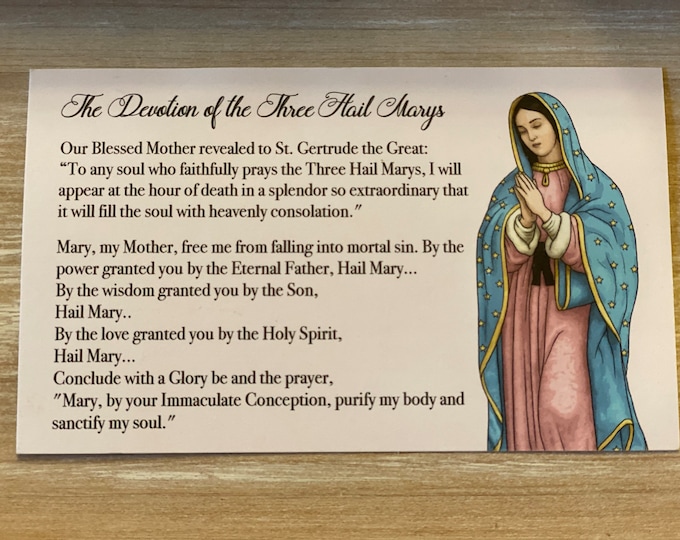 The Devotion of the Three Hail Marys
Our Blessed Mother revealed to St. Gertrude the Great:
“To any soul who faithfully prays the Three Hail Marys, I will
appear at the hour of death in a splendor so extraordinary that
it will fill the soul with heavenly consolation."
Mary, my Mother, free me from falling into mortal sin. By the
power granted you by the Eternal Father, Hail Mary...
By the wisdom granted you by the Son,
Hail Mary..
By the love granted you by the Holy Spirit,
Hail Mary...
Conclude with a Glory be and the prayer,
"Mary, by your Immaculate Conception, purify my body and
sanctify my soul."